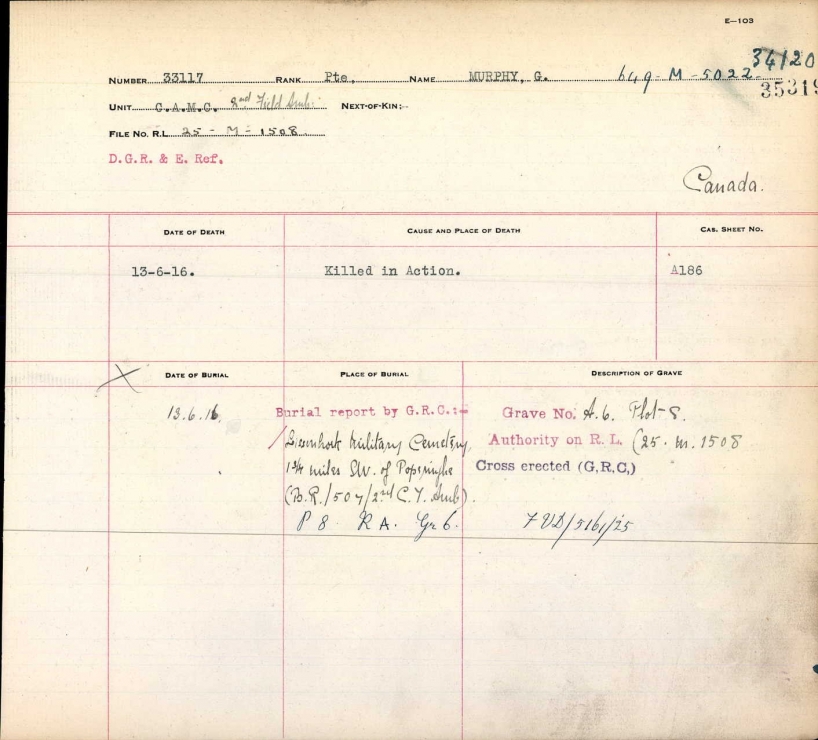 E—103
34120
NUMBER 33117 RANK Pte, NAME MURPHY, G. 649-M-5022
35319
UNIT C.A.M.C. 2nd Field Amb: NEXT-OF-KIN:-
FILE NO. R.L. 25 - M - 1508
D.G.R. & E. Ref.
Canada.
DATE OF DEATH CAUSE AND PLACE OF DEATH CAS. SHEET NO.
13-6-16. Killed in Action. A186
X DATE OF BURIAL PLACE OF BURIAL DESCRIPTION OF GRAVE
13.6.16. Burial report by G.R.C.:- Grave No. A.6. Plot-8.
Military Cemetery Authority on R. L. (25. M. 1508
1¾ miles SW. of Poperinghe Cross erected (G.R.C,)
(B.R./507/2nd C.F. Amb).
P 8 R A. Gr 6. 7 VD/5161/25